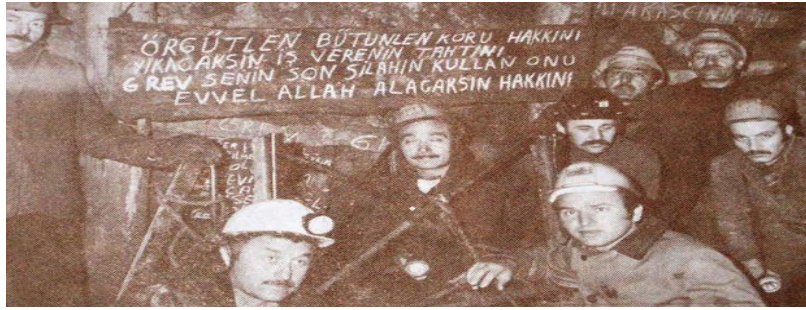 MAKASCININ
ÖRGÜTLEN BÜTÜNLEN KORU HAKKINI
YIKACAKSIN İŞ VERENİN TAHTINI
GREV SENİN SON SİLAHIN KULLAN ONU
EVVEL ALLAH ALACAKSIN HAKKINI